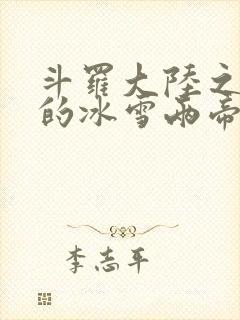 斗羅大陸之
的冰雪兩帝
李志平